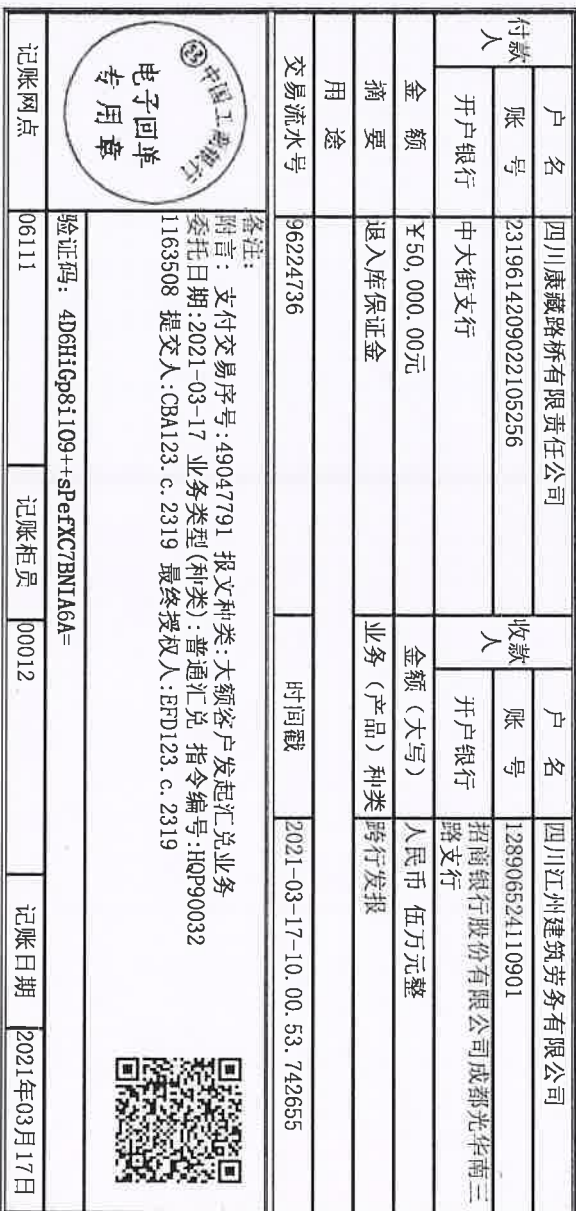 付款人 户 名 四川康藏路桥有限责任公司 收款人 户 名 四川江州建筑劳务有限公司
账 号 2319614209022105256 账 号 128906524110901
开户银行 中大街支行 开户银行 招商银行股份有限公司成都光华南三
路支行
金 额 ¥50,000.00元 金额（大写） 人民币 伍万元整
摘 要 退入库保证金 业务（产品）种类 跨行发报
用 途
交易流水号 96224736 时间戳 2021-03-17-10.00.53.742655
备注:
附言: 支付交易序号:49047791 报文种类:大额客户发起汇兑业务
委托日期:2021-03-17 业务类型(种类):普通汇兑 指令编号:HQP90032
1163508 提交人:CBA123.c.2319 最终授权人:EFD123.c.2319
中国工商银行
电子回单
专用章
验证码: 4D6HiGp8i1O9++sPefXC7BNIA6A=
记账网点 06111 记账柜员 00012 记账日期 2021年03月17日